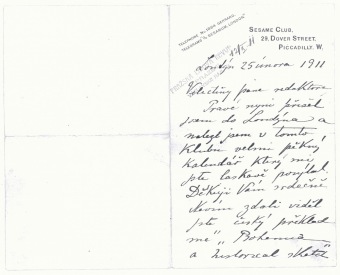 SESAME CLUB,
29, DOVER STREET,
PICCADILLY. W.
Londýn 25 února 1911
Velectěný pane redaktore
Právě nyní přišel
jsem do Londýna a
nalezl jsem v tomto
Klubu velmi pěkný
kalendář který mi
jste laskavě poslal.
Děkuji Vám srdečně
Nevím zdali viděl
jste český překlad
mé „Bohemia
a historical sketch"